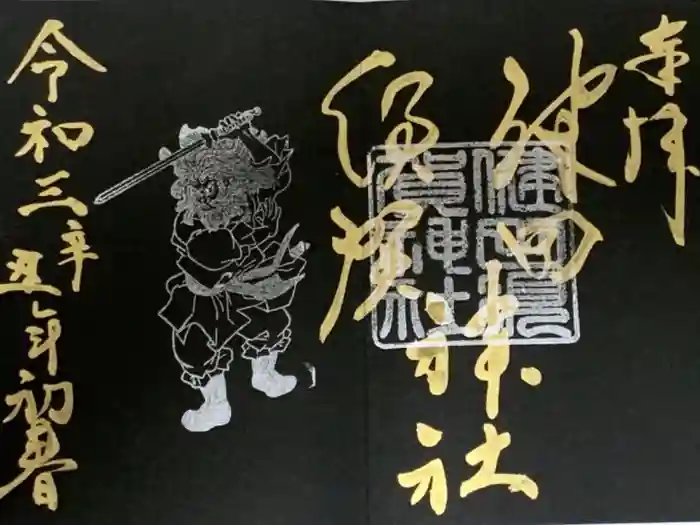 奉拝
健田
須賀
神社
健田須
賀神社
令和三辛
丑年初春